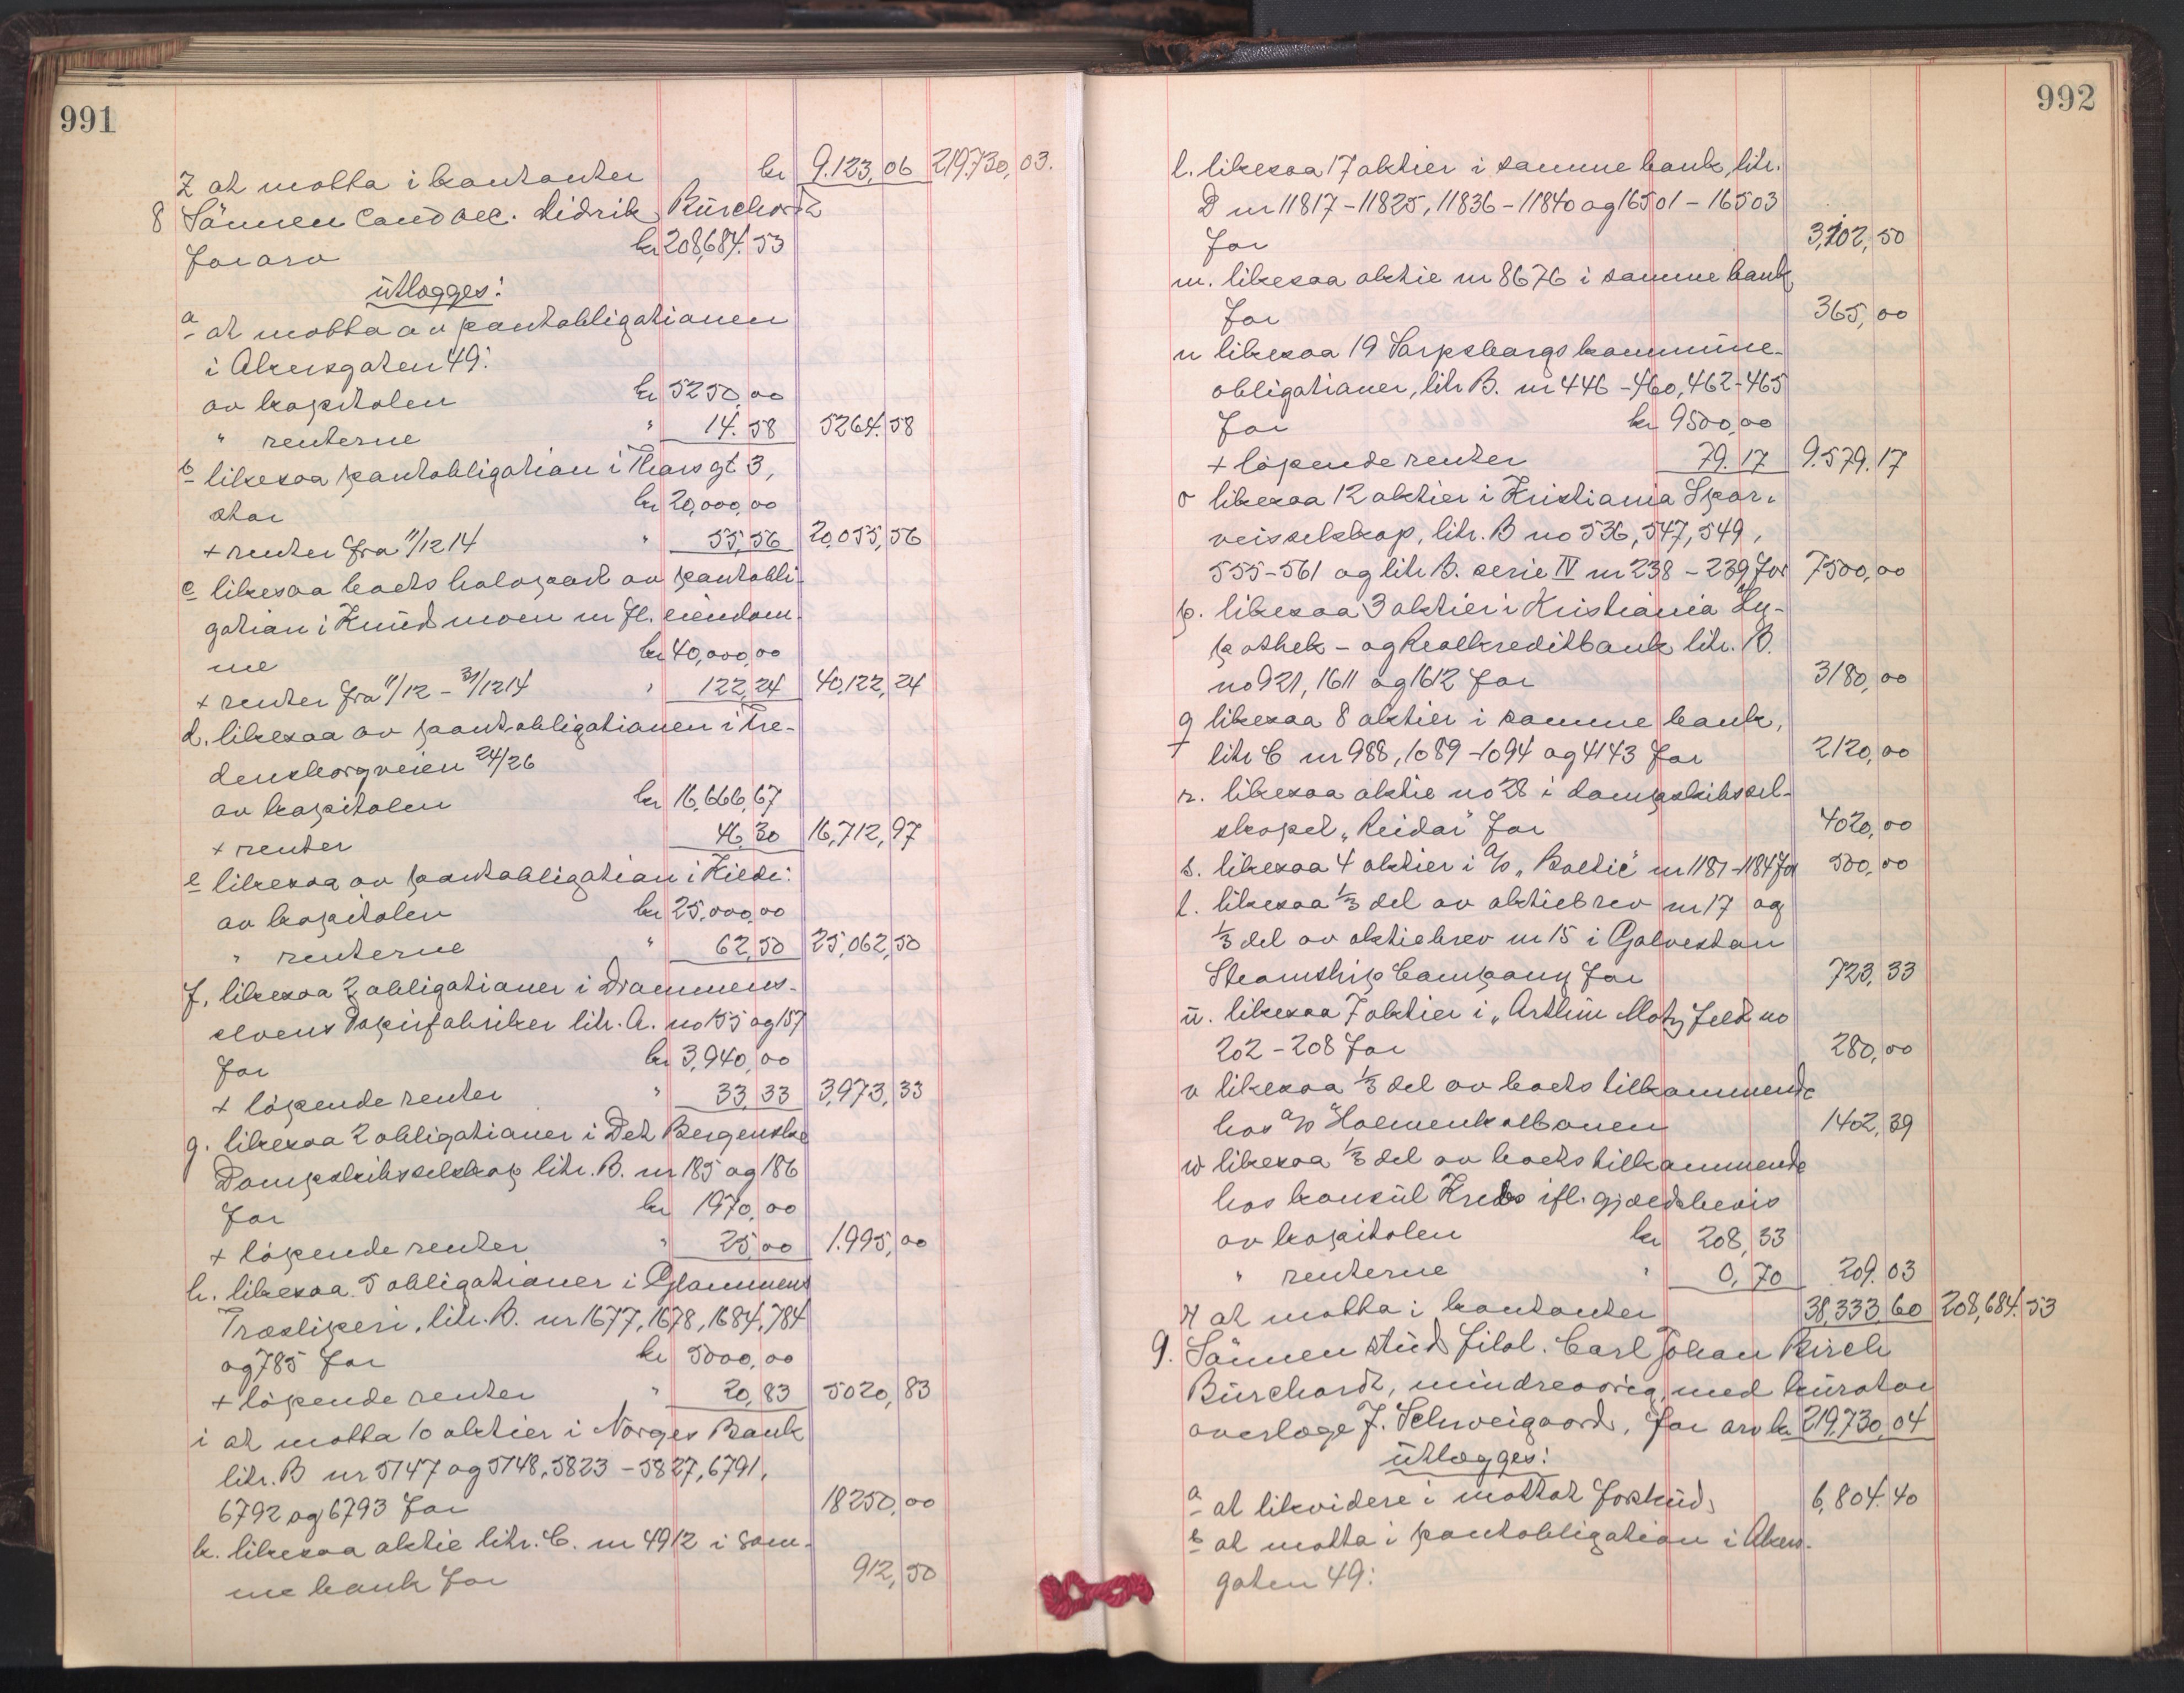 991
z at motta i kontanter kr 9.123,06 219.730,03.
8 Sönnen Cand oec. Didrik Bürchardt
for arv kr 208,684.53
ütlægges:
a at motta av pantobligationen
i Akersgaten 49:
av kapitalen kr 5250,00
" renterne " 14.58 5264.58
b likesaa pantobligation i Thorsgt 3,
stor kr 20,000,00
+ renter fra 11/12 14 " 55,56 20,055,56
c likesaa boets halvpart av pantobli-
gation i Knüdmoen m fl. eiendom-
me kr 40,000,00
+ renter fra 11/12 - 31/12 14 " 122,24 40,122,24
d. likesaa av pantobligationen i Tre-
denborgveien 24/26
av kapitalen kr 16,666,67
+ renter 46,30 16,712,97
e likesaa av pantobligation i Kilde:
av kapitalen kr 25,000,00
" renterne " 62,50 25,062,50
f. likesaa 2 obligationer i Drammens-
elvens Papirfabriker litr. A. no 155 og 157
for kr 3,940,00
+ löpende renter " 33,33 3,973,33
g. likesaa 2 obligationer i Det Bergenske
Dampskibsselskap litr. B. nr 185 og 186
for kr 1970,00
+ löpende renter " 25,00 1.995,00
h. likesaa 5 obligationer i Glommens
Træsliperi, litr. B. nr 1677, 1678, 1684, 784
og 785 for kr 5000,00
+ löpende renter " 20,83 5020,83
i at motta 10 aktier i Norges Bank
litr. B nr 5147 og 5148, 5823 - 5827, 6791,
6792 og 6793 for 18250,00
k. likesaa aktie litr. C. nr 4912 i sam-
me bank for 912,50
992
l. likesaa 17 aktier i samme bank, litr.
D nr 11817 - 11825, 11836 - 11840 og 16501 - 16503
for 3,102,50
m. likesaa aktie nr 8676 i samme bank
for 365,00
n likesaa 19 Sarpsborgs kommüne-
obligationer, litr B. nr 446 - 460, 462 - 465
for kr 9500,00
+ löpende renter 79.17 9.579.17
o likesaa 12 aktier i Kristiania Spor-
veisselskap, litr. B no 536, 547, 549,
555 - 561 og litr B. serie IV nr 238 - 239 for 7500,00
p. likesaa 3 aktier i Kristiania Hy-
pothek- og Realkreditbank litr. B.
no 921, 1611 og 1612 for 3180,00
q likesaa 8 aktier i samme bank,
litr C nr 988, 1089 - 1094 og 4143 for 2120,00
r. likesaa aktie no 28 i dampskibssel-
skapet „Reidar" for 4020,00
s. likesaa 4 aktier i A/S „Baltic" nr 1181 - 1184 for 500,00
t. likesaa 1/3 del av aktiebrev nr 17 og
1/3 del av aktiebrev nr 15 i Galvestan
Steamship Company for 723,33
ü. likesaa 7 aktier i „Arthür Motzfeldt no
202 - 208 for 280,00
v likesaa 1/3 del av boets tilkommende
hos A/S Holmenkolbanen 1402,39
w likesaa 1/3 del av boets tilkommende
hos konsül Krebs ifl. gjældsbevis
av kapitalen kr 208,33
" renterne " 0,70 209.03
x at motta i kontanter 38,333,60 208,684.53
9. Sönnen stüd filol. Carl Johan Kirch
Bürchardt, mindreaarig, med kürator
overlæge J. Schweigaard, for arv kr. 219,730,04
ütlægges:
a at likvidere i mottat forsküd 6,804.40
b at motta i pantobligation i Akers-
gaten 49: